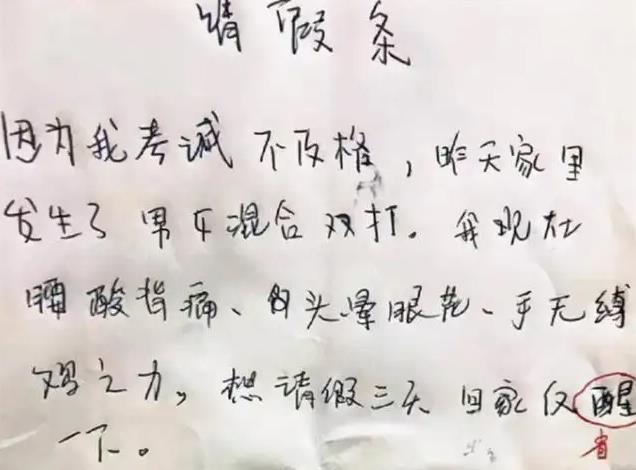 请假条
因为我考试不及格，昨天家里
发生了男女混合双打。我现在
腰酸背痛、头晕眼花、手无缚
鸡之力，想请假三天回家反醒
省
一下。